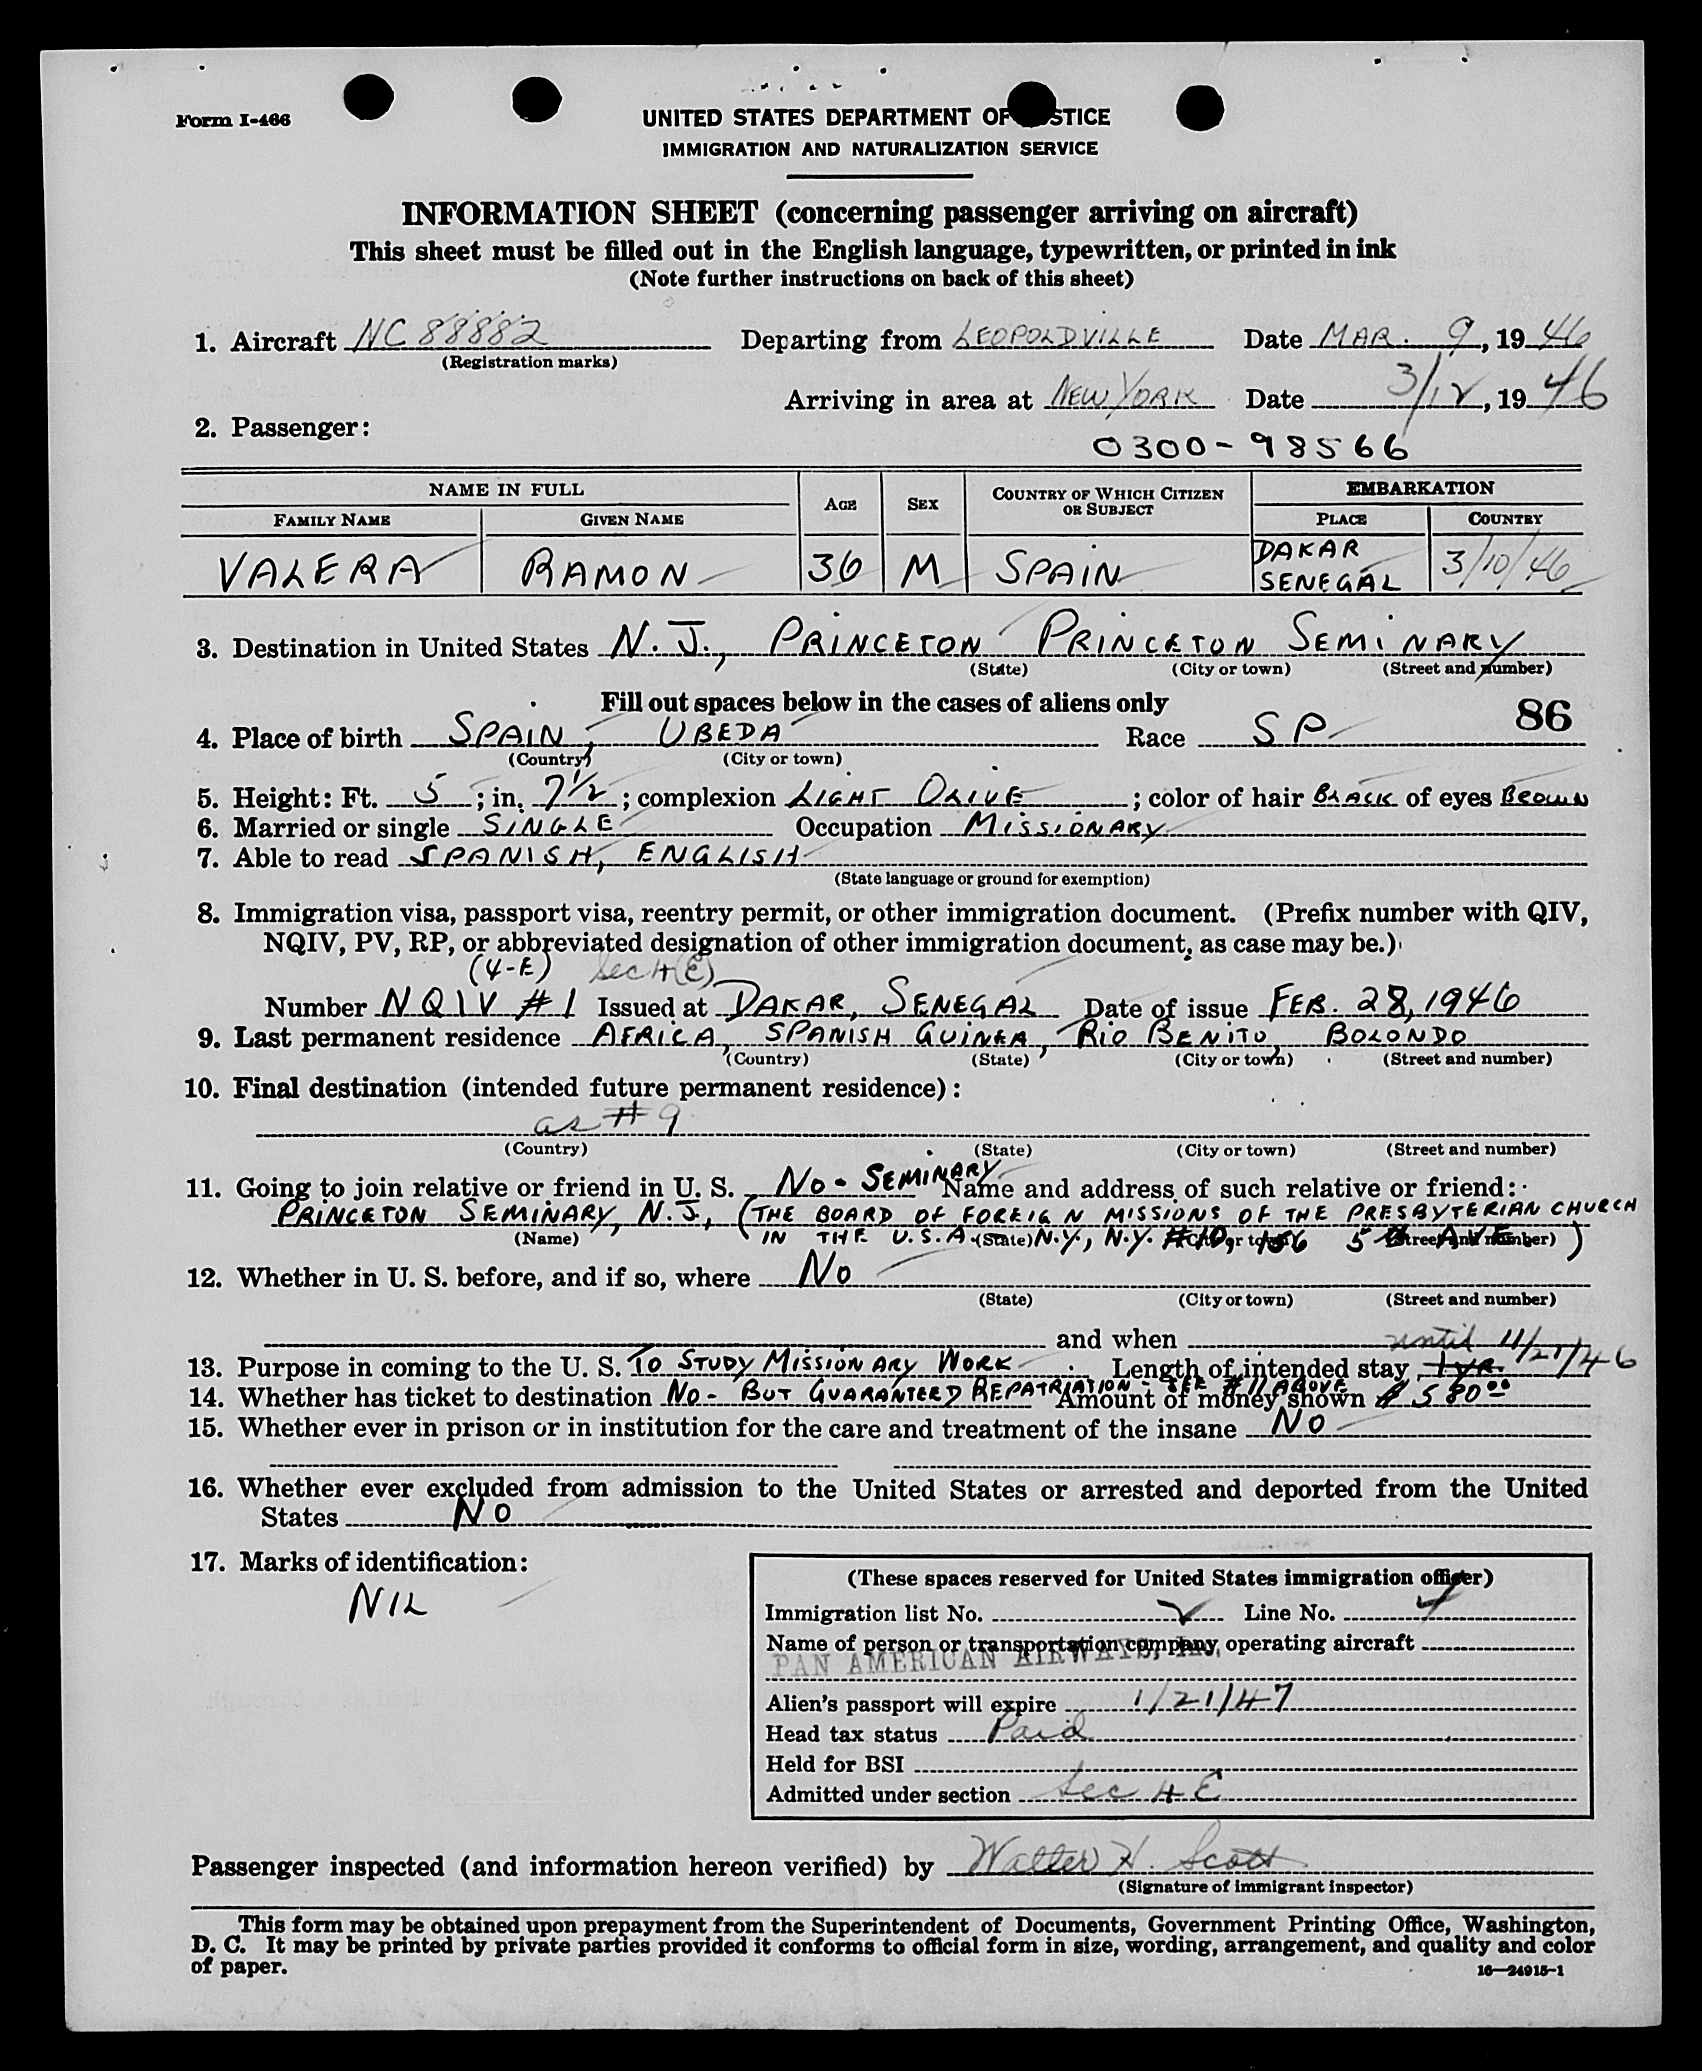 Form I-466
UNITED STATES DEPARTMENT OF JUSTICE
IMMIGRATION AND NATURALIZATION SERVICE
INFORMATION SHEET (concerning passenger arriving on aircraft)
This sheet must be filled out in the English language, typewritten, or printed in ink
(Note further instructions on back of this sheet)
1. Aircraft NC 88882 Departing from LEOPOLDVILLE Date MAR. 9, 1946
(Registration marks)
Arriving in area at NEW YORK Date 3/12, 1946
2. Passenger:
0300-98566
NAME IN FULL AGE SEX COUNTRY OF WHICH CITIZEN OR SUBJECT EMBARKATION
FAMILY NAME GIVEN NAME PLACE COUNTRY
VALERA RAMON 36 M SPAIN DAKAR SENEGAL 3/10/46
3. Destination in United States N. J., PRINCETON PRINCETON SEMINARY
(State) (City or town) (Street and number)
Fill out spaces below in the cases of aliens only
86
4. Place of birth SPAIN, UBEDA Race SP
(Country) (City or town)
5. Height: Ft. 5 ; in. 7½ ; complexion LIGHT OLIVE ; color of hair BLACK of eyes BROWN
6. Married or single SINGLE Occupation MISSIONARY
7. Able to read SPANISH, ENGLISH
(State language or ground for exemption)
8. Immigration visa, passport visa, reentry permit, or other immigration document. (Prefix number with QIV,
NQIV, PV, RP, or abbreviated designation of other immigration document, as case may be.)
(4-E) Sec 4(E)
Number NQIV #1 Issued at DAKAR, SENEGAL Date of issue FEB. 28, 1946
9. Last permanent residence AFRICA, SPANISH GUINEA, RIO BENITO, BOLONDO
(Country) (State) (City or town) (Street and number)
10. Final destination (intended future permanent residence):
as # 9
(Country) (State) (City or town) (Street and number)
11. Going to join relative or friend in U. S. NO - SEMINARY Name and address of such relative or friend:
PRINCETON SEMINARY, N. J., (THE BOARD OF FOREIGN MISSIONS OF THE PRESBYTERIAN CHURCH
IN THE U.S.A. N.Y., N.Y. #10, 156 5th AVE)
(Name) (State) (City or town) (Street and number)
12. Whether in U. S. before, and if so, where NO
(State) (City or town) (Street and number)
and when
until 11/21/46
13. Purpose in coming to the U. S. TO STUDY MISSIONARY WORK Length of intended stay 1 YR.
14. Whether has ticket to destination NO - BUT GUARANTEED REPATRIATION - SEE #11 ABOVE Amount of money shown $ 580.00
15. Whether ever in prison or in institution for the care and treatment of the insane NO
16. Whether ever excluded from admission to the United States or arrested and deported from the United
States NO
17. Marks of identification:
NIL
(These spaces reserved for United States immigration officer)
Immigration list No. Line No. 4
Name of person or transportation company operating aircraft
PAN AMERICAN AIRWAYS, Inc.
Alien's passport will expire 1/21/47
Head tax status Paid
Held for BSI
Admitted under section Sec 4 E
Passenger inspected (and information hereon verified) by Walter H. Scott
(Signature of immigrant inspector)
This form may be obtained upon prepayment from the Superintendent of Documents, Government Printing Office, Washington,
D. C. It may be printed by private parties provided it conforms to official form in size, wording, arrangement, and quality and color
of paper.
16—24915-1